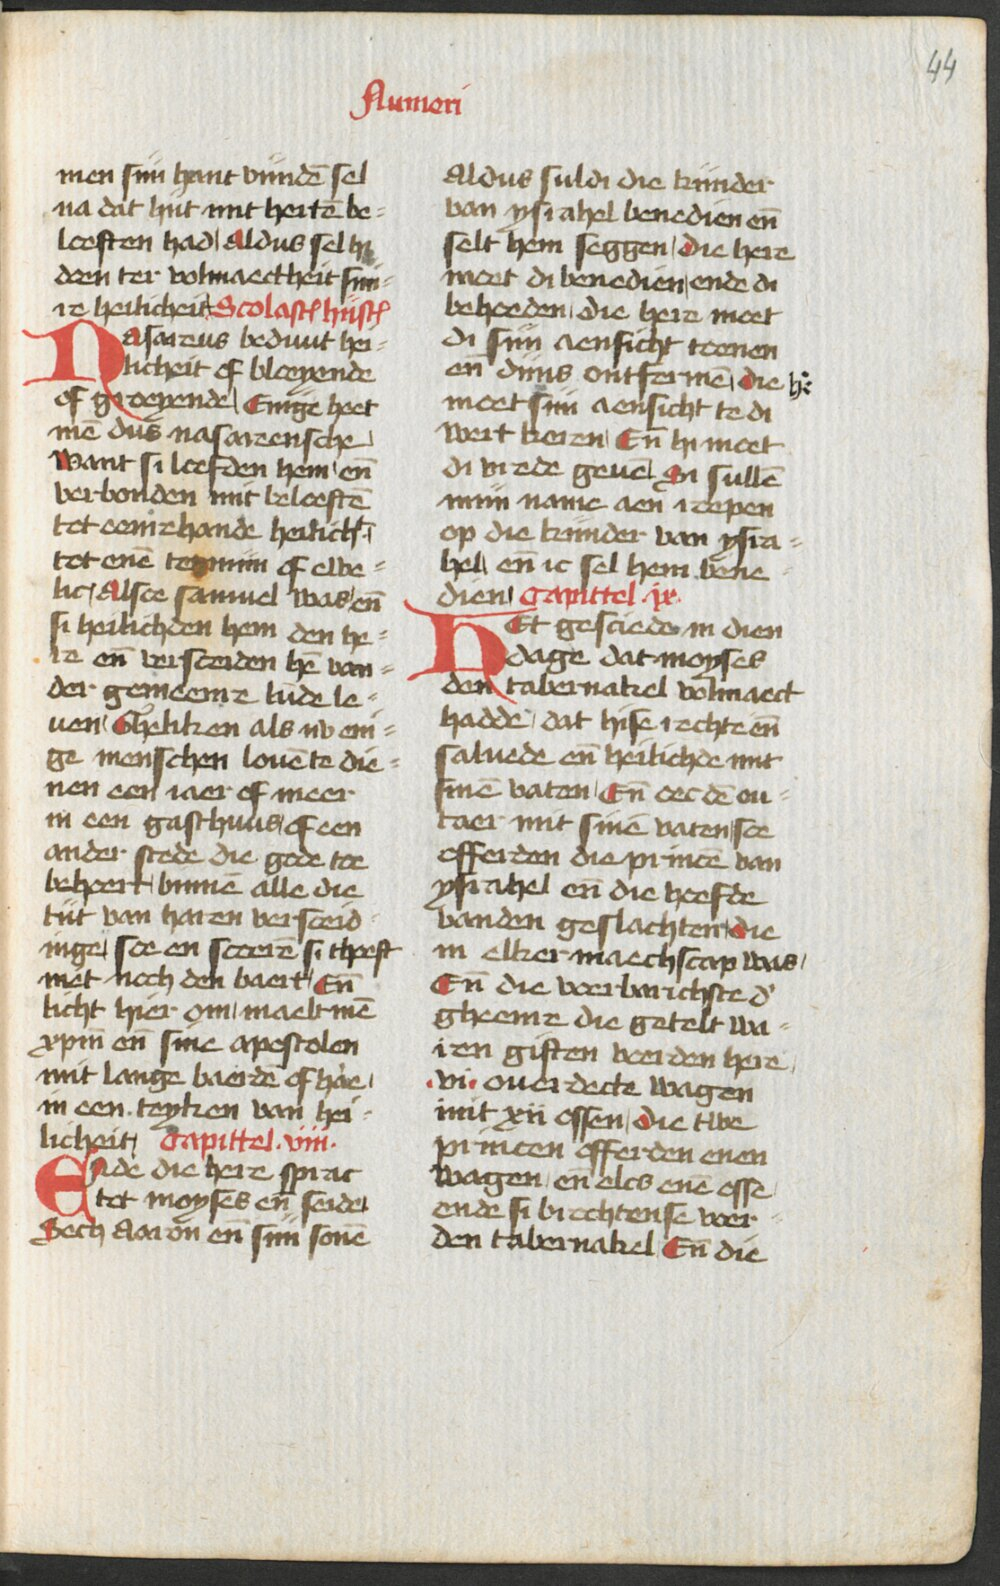 44
Numeri
men sijn hant vindē sel
na dat hijt mit hertē be=
loeften had Aldus sel hi
doen ter volmaectheit sijn=
re heilicheit Scolasti histi
Nasareus beduut hei=
licheit of bloeyende
of groeyende Enige heet
mē dus nasareensche
want si loefden hem en̄
verbonden mit beloeftē
tot eenrehande heilicht
tot enē termijn of ewe=
lic Alsoe samuel was en̄
si heilichden hem den he=
re en̄ versceiden hē van=
der gemeenre lude le=
uen Ghelikken als nv eni=
ge menschen louē te die=
nen een iaer of meer
in een gasthuus of een
ander stede die gode toe
behoert binnē alle die
tijt van haren versceid=
inge soe en scoerē si thooft
niet noch den baert En̄
licht hier om maelt mē
xpm̄ en̄ sine apostolen
mit lange baerdē of hare
in een teyken van hei=
licheit Capittel .viii.
Ende die here sprac
tot moyses en̄ seide
Sech aaron en̄ sijn sonē
Aldus suldi die kinder
van ysrahel benedien en̄
selt hem seggen Die here
moet di benedien ende di
behoeden die here moet
di sijn aensicht toenen
en̄ dijns ontfermē Die he
moet sijn aensicht te di
wert keren En̄ hi moet
di vrede geuē Si sullē
mijn name aen roepen
op die kinder van ysra=
hel en̄ ic sel hem bene=
dien Capittel .ix.
Het gesciede in dien
dage dat moyses
den tabernakel volmaect
hadde dat hise rechte en̄
saluede en̄ heilichde mit
sinē vaten En̄ oec dē ou=
taer mit sinē vaten soe
offerden die princē van
ysrahel en̄ die hoefde
vanden geslachten die
in elker maechscap was
En̄ die voerbarichste d'
gheenre die getelt wa=
ren giften voerden here
.vi. ouerdecte wagen
mit xii ossen Die twe
princen offerden enen
wagen en̄ elcs enē osse
ende si brochtense voer
den tabernakel En̄ die